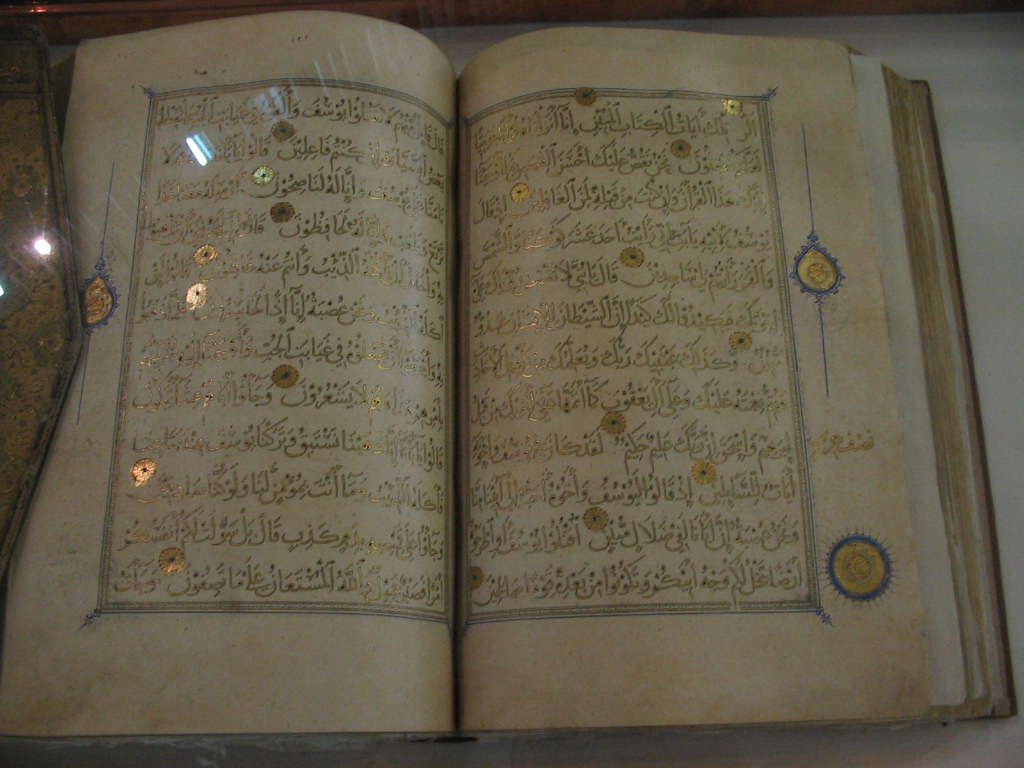 الر تلك آيات الكتاب المبين إنا أنزلناه قرآنا عربيا
لعلكم تعقلون نحن نقص عليك أحسن القصص بما أوحينا
إليك هذا القرآن وإن كنت من قبله لمن الغافلين إذ قال
يوسف لأبيه يا أبت إني رأيت أحد عشر كوكبا والشمس
والقمر رأيتهم لي ساجدين قال يا بني لا تقصص رؤياك على
إخوتك فيكيدوا لك كيدا إن الشيطان للإنسان عدو
مبين وكذلك يجتبيك ربك ويعلمك من تأويل الأحاديث
ويتم نعمته عليك وعلى آل يعقوب كما أتمها على أبويك من قبل
إبرهيم وإسحق إن ربك عليم حكيم لقد كان في يوسف وإخوته
آيات للسائلين إذ قالوا ليوسف وأخوه أحب إلى أبينا منا
ونحن عصبة إن أبانا لفي ضلال مبين اقتلوا يوسف أو اطرحوه
أرضا يخل لكم وجه أبيكم وتكونوا من بعده قوما صالحين
نصف حزب
قال قائل منهم لا تقتلوا يوسف وألقوه في غيابت الجب يلتقطه
بعض السيارة إن كنتم فاعلين قالوا يا أبانا ما لك لا
تأمنا على يوسف وإنا له لناصحون أرسله معنا غدا
يرتع ويلعب وإنا له لحافظون قال إني ليحزنني أن تذهبوا
به وأخاف أن يأكله الذئب وأنتم عنه غافلون قالوا لئن
أكله الذئب ونحن عصبة إنا إذا لخاسرون فلما ذهبوا
به وأجمعوا أن يجعلوه في غيابت الجب وأوحينا إليه لتنبئنهم
بأمرهم هذا وهم لا يشعرون وجاؤا أباهم عشاء يبكون
قالوا يا أبانا إنا ذهبنا نستبق وتركنا يوسف عند متاعنا
فأكله الذئب وما أنت بمؤمن لنا ولو كنا صادقين
وجاؤا على قميصه بدم كذب قال بل سولت لكم أنفسكم
أمرا فصبر جميل والله المستعان على ما تصفون وجاءت